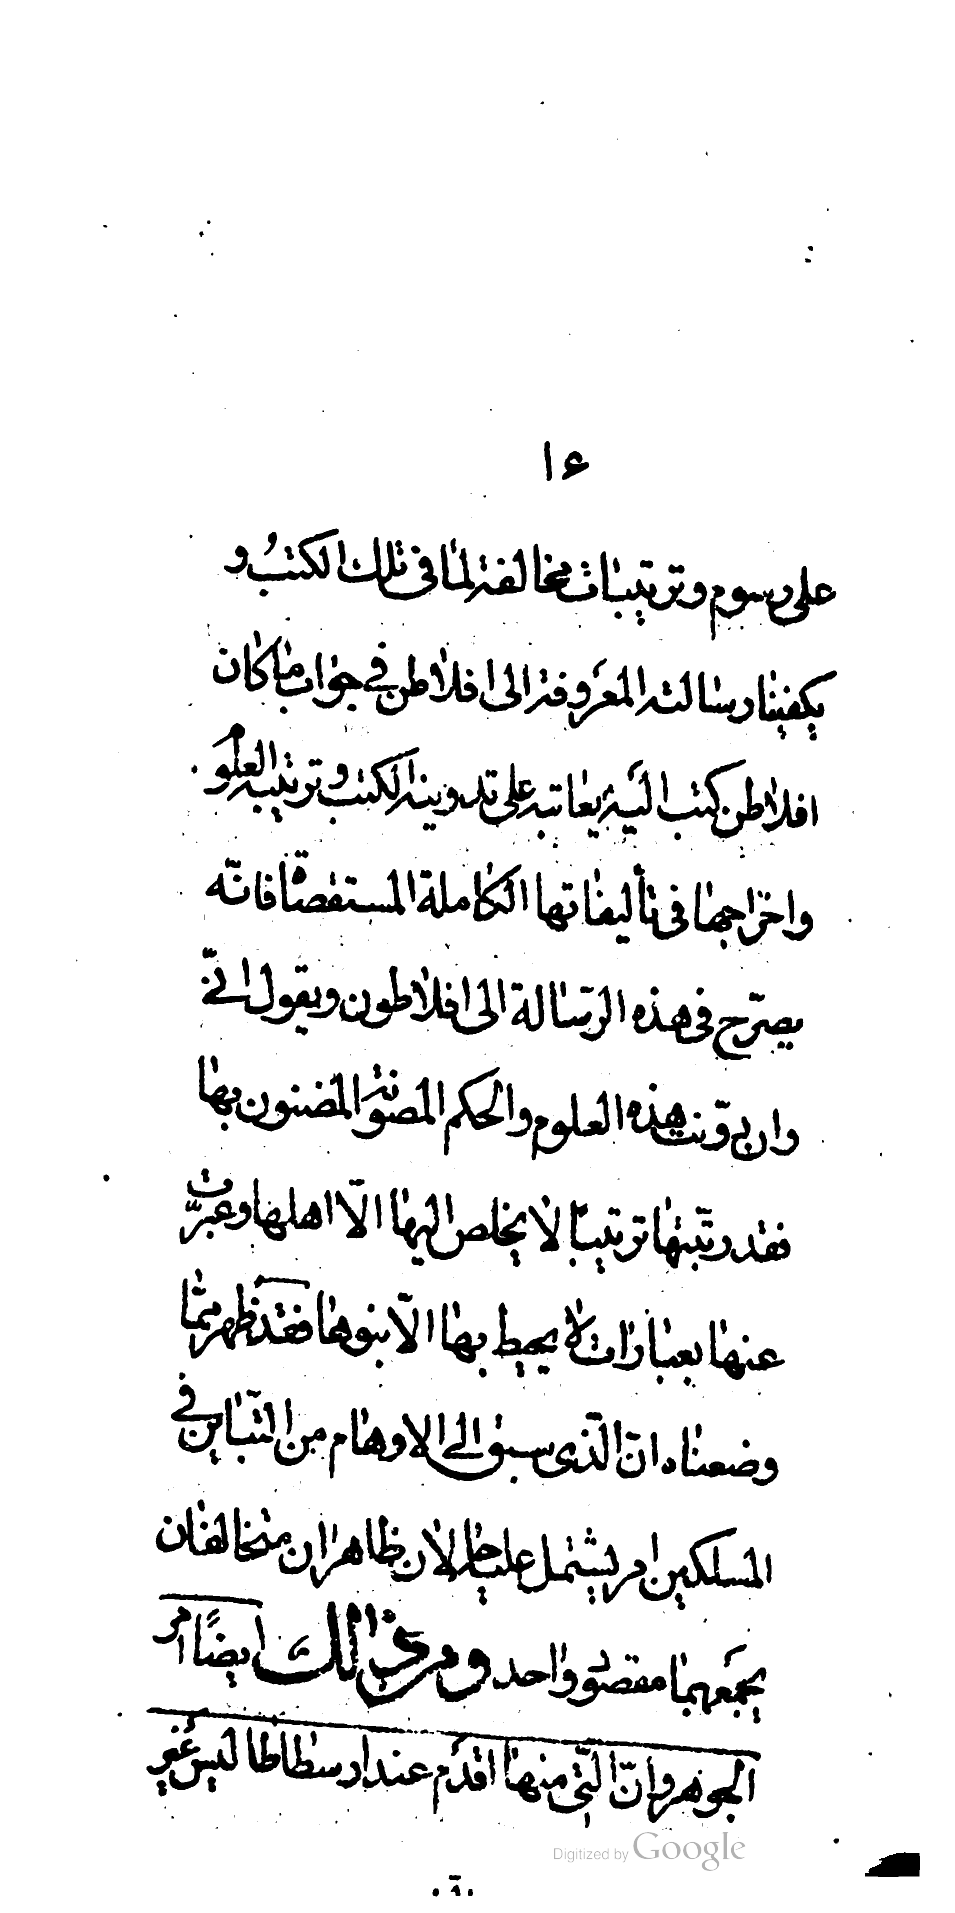 ١٤
على رسوم وترتيبات مخالفة لما فى تلك الكتب و
يكفينا رسالته المعروفة الى افلاطن في جواب ما كان
افلاطن كتب اليه يعاتبه على تدوينه الكتب وترتيبه العلو
واخراجها فى تأليفاتها الكاملة المستقصاة فانّه
يصرّح فى هذه الرّسالة الى افلاطون ويقول انّي
وان دوّنت هذه العلوم والحكم المصونة المضنون بها
فقد رتّبتها ترتيبًا لا يخلص اليها الّا اهلها وعبّرت
عنها بعبارات لا يحيط بها الّا بنوها فقد ظهر ممّا
وضعناه انّ الّذى سبق الى الاوهام من التّباين في
المسلكين امر يشتمل عليه حالان ظاهران متخالفان
يجمعهما مقصود واحد ومن ذلك ايضًا امر
الجوهر وانّ الّتى منها اقدم عند ارسطاطاليس غير
Digitized by Google